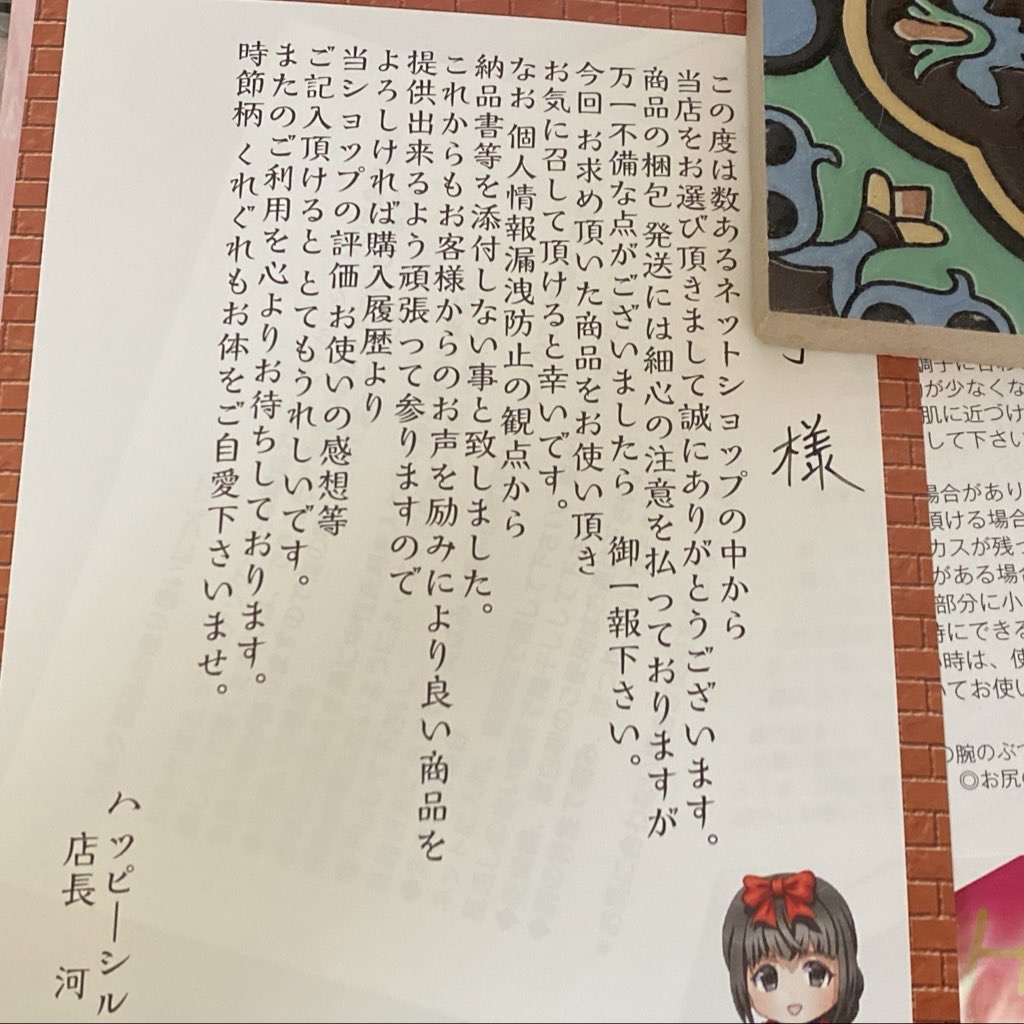 様
この度は数あるネットショップの中から
当店をお選び頂きまして誠にありがとうございます。
商品の梱包 発送には細心の注意を払っておりますが
万一不備な点がございましたら 御一報下さい。
今回 お求め頂いた商品をお使い頂き
お気に召して頂けると幸いです。
なお 個人情報漏洩防止の観点から
納品書等を添付しない事と致しました。
これからもお客様からのお声を励みにより良い商品を
提供出来るよう頑張って参りますので
よろしければ購入履歴より
当ショップの評価 お使いの感想等
ご記入頂けると とてもうれしいです。
またのご利用を心よりお待ちしております。
時節柄 くれぐれもお体をご自愛下さいませ。
ハッピーシル
店長 河
が少なくな
肌に近づけ
して下さい
場合があり
頂ける場合
カスが残っ
がある場合
部分に小
時にできる
時は、使
いてお使い
の腕のぶつ
◎お尻の